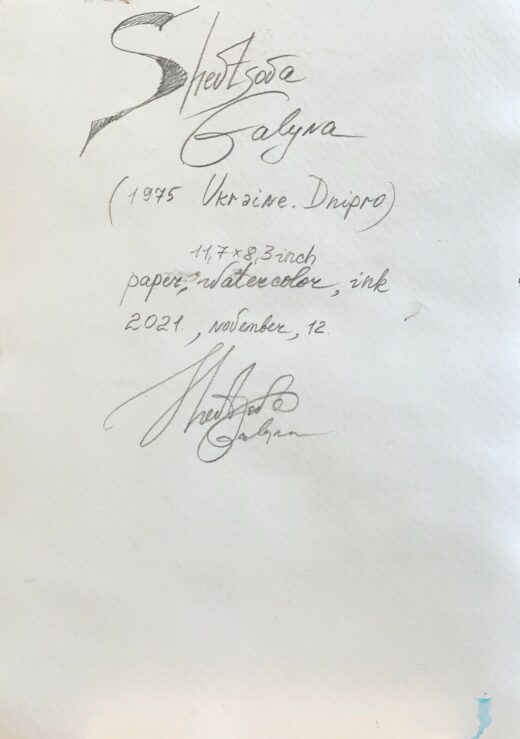 Shevtsova
Galyna
(1975 Ukraine. Dnipro)
11,7×8,3 inch
paper, watercolor, ink
2021., november, 12.
Shevtsova
Galyna